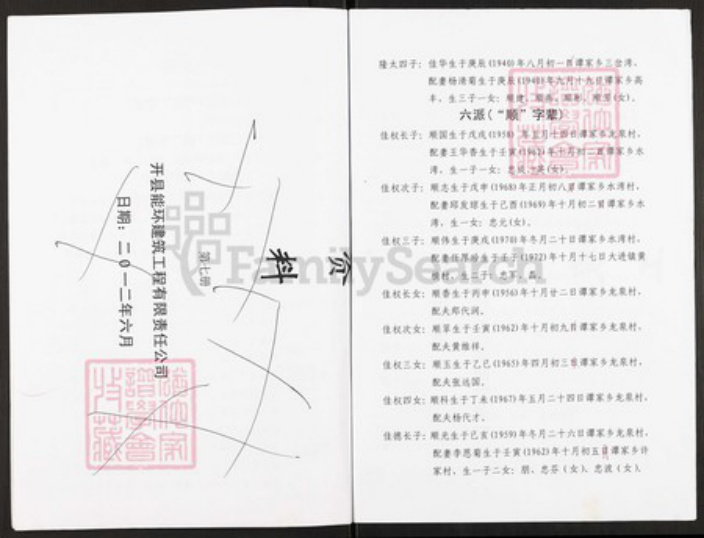 资料
第七册
开县能环建筑工程有限责任公司
日期：二0一二年六月
FamilySearch
隆太四子：佳华生于庚辰(1940)年八月初一日谭家乡三岔湾，
配妻杨清菊生于庚辰(1940)年六月十九日谭家乡高
丰，生三子一女：顺
六派(“顺”字辈)
佳权长子：顺国生于戊戌(1958)年五月十四日谭家乡龙泉村，
配妻王华香生于壬寅(1962)年十月初二日谭家乡水
湾，生一子一女：忠
佳权次子：顺志生于戊申(1968)年正月初八日谭家乡水湾村，
配妻邱发琼生于己酉(1969)年十月初二日谭家乡水
湾，生一女：忠元(女)。
佳权三子：顺伟生于庚戌(1970)年冬月二十日谭家乡水湾村，
配妻任厚珍生于壬子(1972)年十月十七日大进镇黄
村，生二子：忠军、磊。
佳权长女：顺香生于丙申(1956)年十月廿二日谭家乡龙泉村，
配夫郑代润。
佳权次女：顺翠生于壬寅(1962)年十月初九日谭家乡龙泉村，
配夫黄维祥。
佳权三女：顺玉生于乙巳(1965)年四月初三日谭家乡龙泉村，
配夫张远国。
佳权四女：顺科生于丁未(1967)年五月二十四日谭家乡龙泉村，
配夫杨代才。
佳德长子：顺光生于己亥(1959)年冬月二十六日谭家乡龙泉村，
配妻李恩菊生于壬寅(1962)年十月初五日谭家乡许
家村，生一子二女：朋、忠芬(女)、忠波(女)。